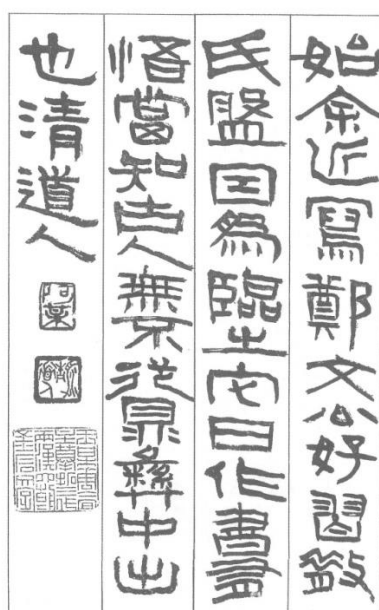 始余近寫鄭文公好習散
氏盤因爲臨之它日作書
悟當知古人無不從鼎彝中出
也清道人